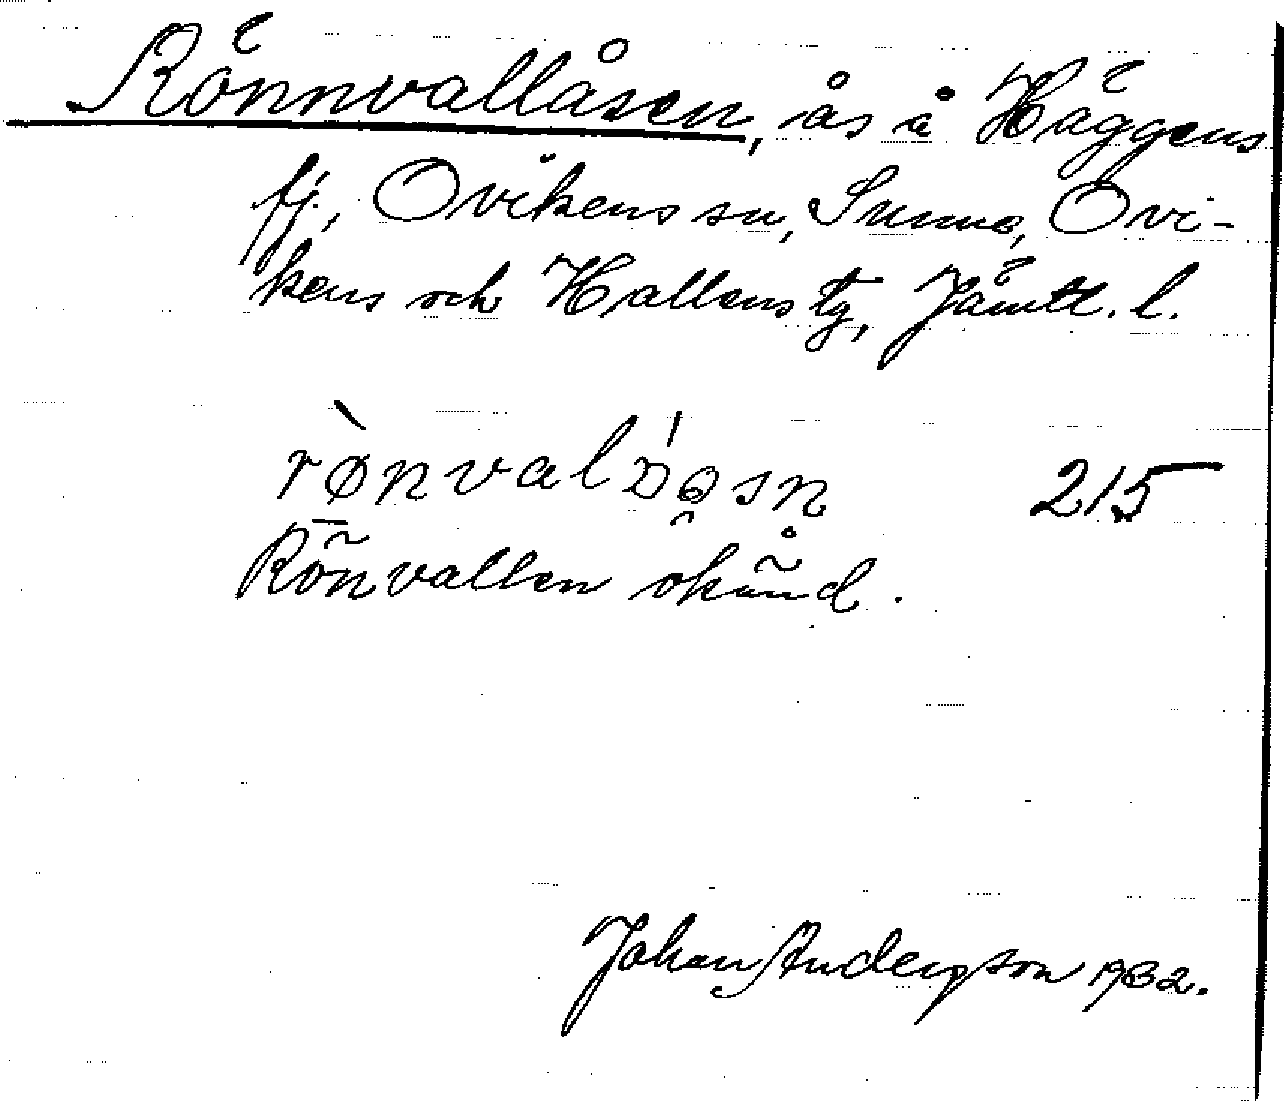 Rönnvallåsen, ås å Häggens
fj., Ovikens sn, Sunne, Ovi-
kens och Hallens tg, Jämtl. l.
215
Rönvallen okänd.
Johan Anderson 1932.